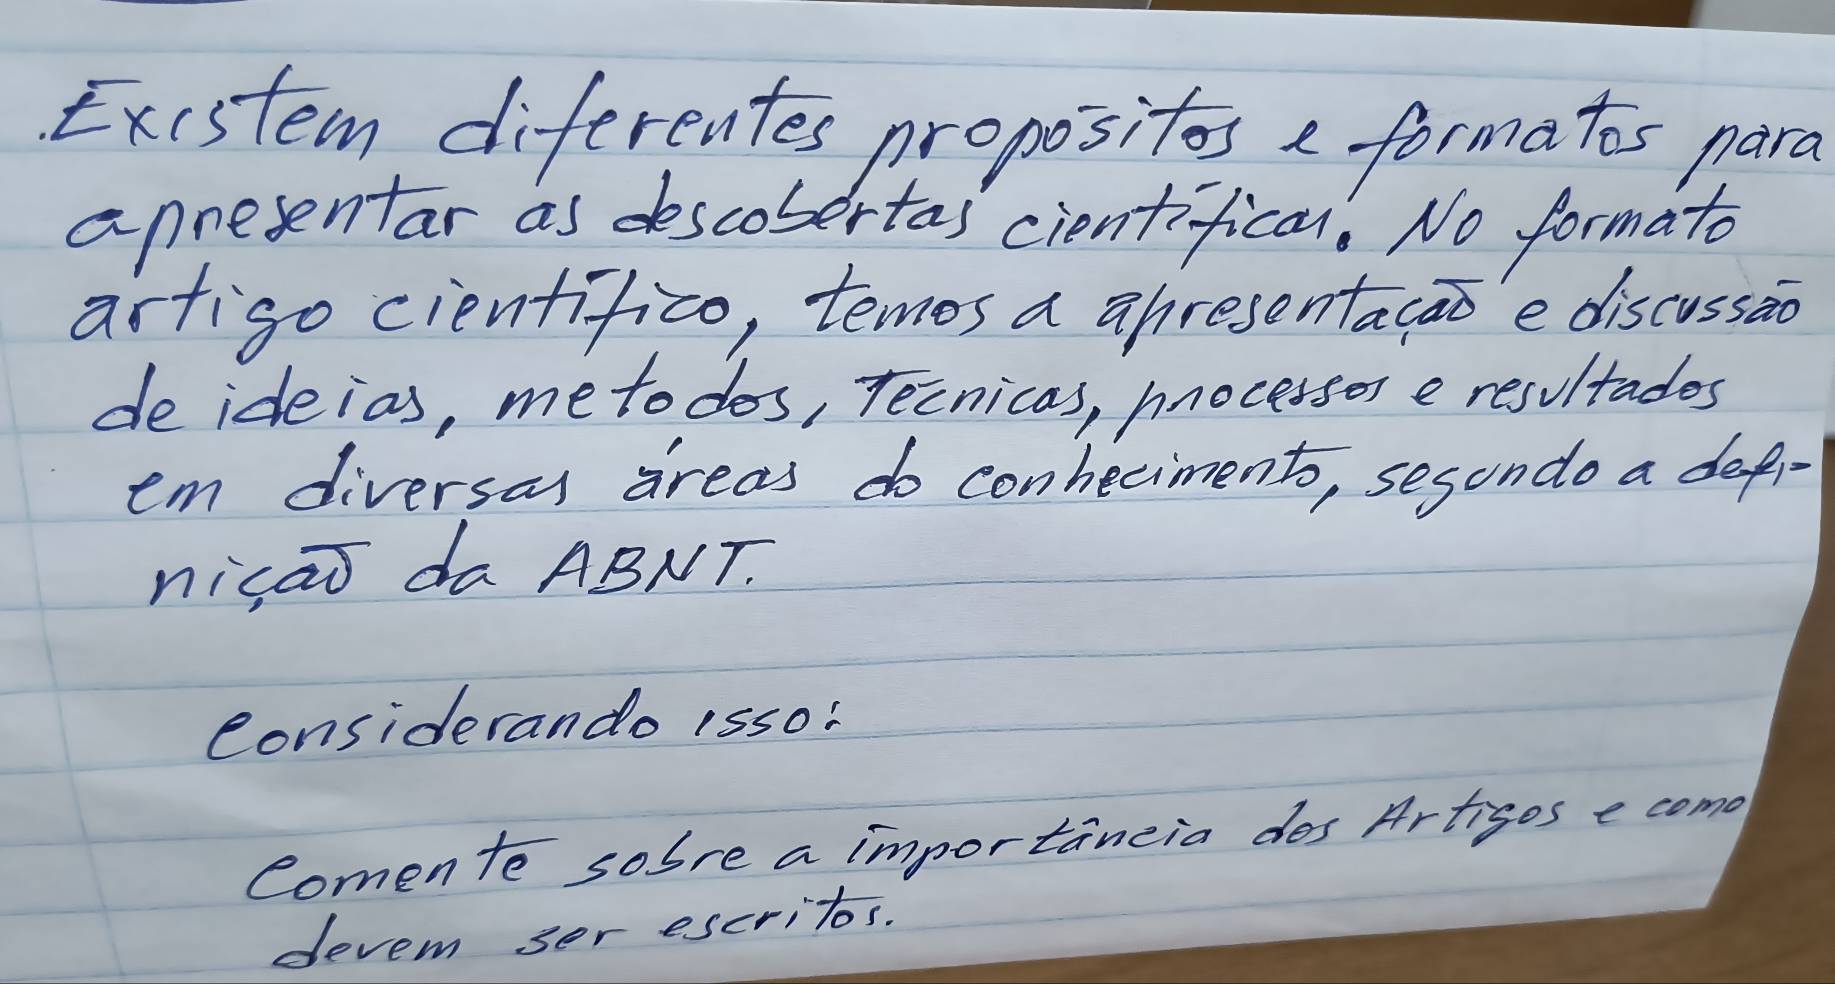 .Existem diferentes propósitos e formatos para
apresentar as descobertas científicas. No formato
artigo científico, temos a apresentação e discussão
de ideias, metodos, Técnicas, processos e resultados
em diversas áreas do conhecimento, segundo a defi-
nição da ABNT.
Considerando isso:
Comente sobre a importância dos Artigos e como
devem ser escritos.